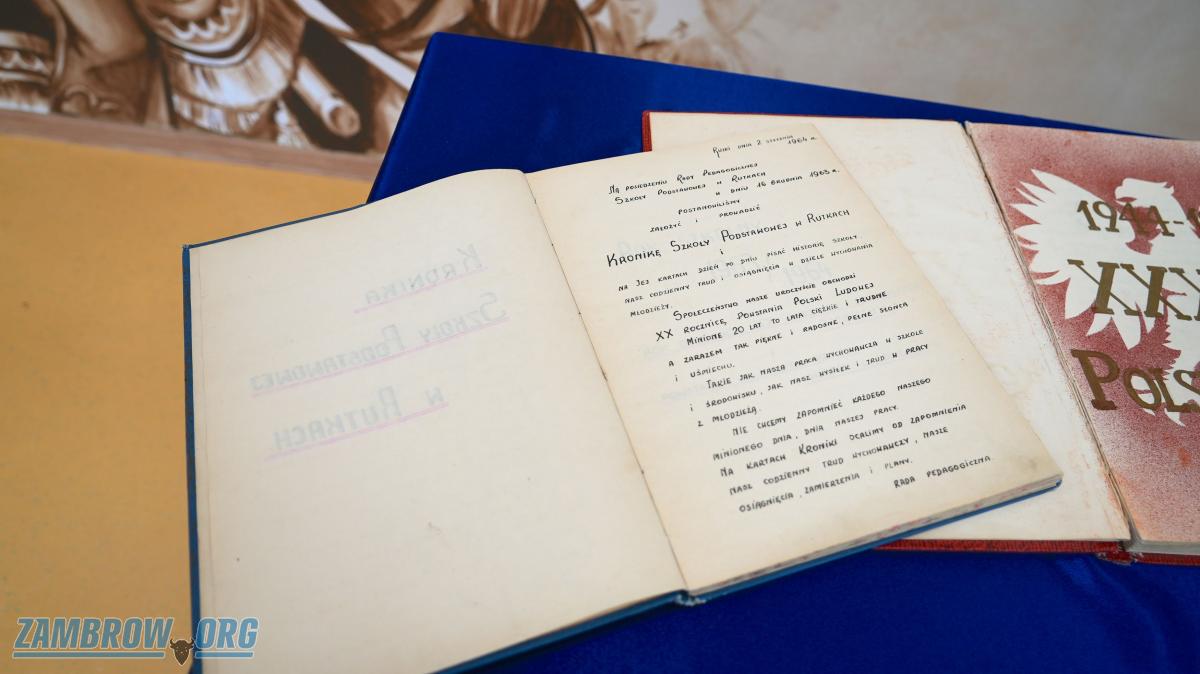 Kronika
Szkoły Podstawowej
w Rutkach
Rutki dnia 2 stycznia 1964 r.
Na posiedzeniu Rady Pedagogicznej
Szkoły Podstawowej w Rutkach
w dniu 16 grudnia 1963 r.
postanowiliśmy
założyć i prowadzić
Kronikę Szkoły Podstawowej w Rutkach
i
na jej kartach dzień po dniu pisać historię szkoły,
nasz codzienny trud i osiągnięcia w dziele wychowania
młodzieży.
Społeczeństwo nasze uroczyście obchodzi
XX rocznicę powstania Polski Ludowej
Minione 20 lat to lata ciężkie i trudne
a zarazem tak piękne i radosne, pełne słońca
i uśmiechu.
Takie jak nasza praca wychowawcza w szkole
i środowisku, jak nasz wysiłek i trud w pracy
z młodzieżą.
Nie chcemy zapomnieć każdego naszego
minionego dnia, dnia naszej pracy.
Na kartach Kroniki ocalimy od zapomnienia
nasz codzienny trud wychowawczy, nasze
osiągnięcia, zamierzenia i plany.
Rada Pedagogiczna
1944-1
XXX
Pols
ZAMBROW.ORG